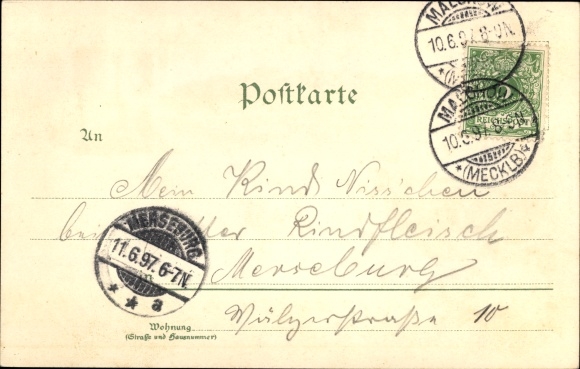 MALCHOW
10.6.97. 8-9N.
Postkarte
REICHSPOST
MALCHOW
10.6.97. 8-9N.
*(MECKLB)*
An
Mein Kind Niss'chen
Rindfleisch
MERSEBURG
11.6.97. 6-7N.
* * a
in
Merseburg
10
Wohnung
(Straße und Hausnummer)